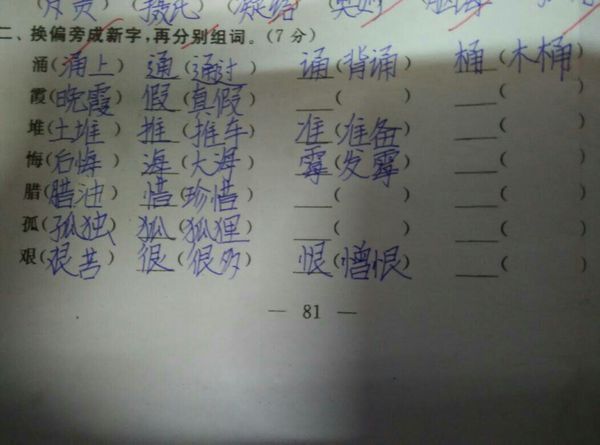 二、换偏旁成新字,再分别组词。(7分)
涌(涌上) 通(通过) 诵(背诵) 桶(木桶)
霞(晚霞) 假(真假) __( ) __( )
堆(土堆) 推(推车) 准(准备) __( )
悔(后悔) 海(大海) 霉(发霉) __( )
腊(腊油) 惜(珍惜) __( ) __( )
孤(孤独) 狐(狐狸) __( ) __( )
艰(艰苦) 很(很多) 恨(憎恨) __( )
— 81 —